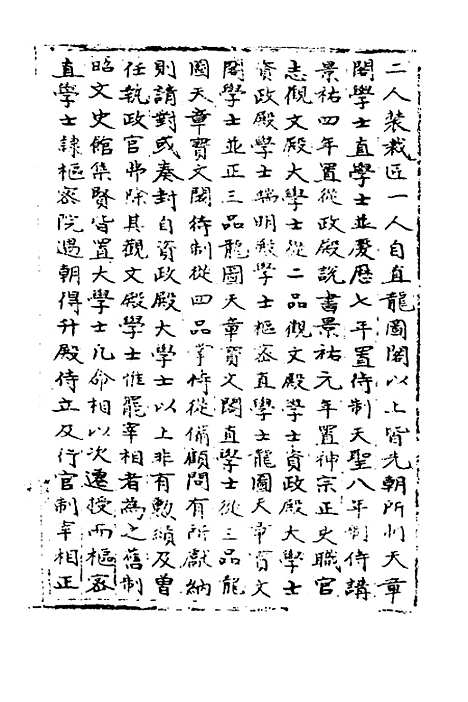 二人裝裁匠一人自直龍圖閣以上皆先朝所刱天章
閣學士直學士並慶歷七年置待制天聖八年制侍講
景祐四年置從政殿說書景祐元年置神宗正史職官
志觀文殿大學士從二品觀文殿學士資政殿大學士
資政殿學士端明殿學士樞密直學士龍圖天章寶文
閣學士並正三品龍圖天章寶文閣直學士從三品龍
圖天章寶文閣待制從四品掌侍從備顧問有所獻納
則請對或奏封自資政殿大學士以上非有勲績及曾
任執政官弗除其觀文殿學士惟罷宰相者為之舊制
昭文史館集賢皆置大學士凡命相以次遷授而樞密
直學士隷樞密院遇朝得升殿侍立及行官制宰相正